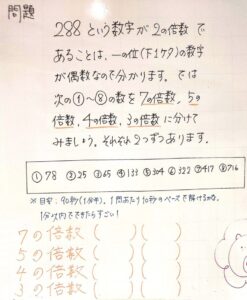 問題
288という数字が2の倍数で
あることは、一の位(下1ケタ)の数字
が偶数なので分かります。では
次の①~⑧の数を7の倍数、5の
倍数、4の倍数、3の倍数に分けて
みましょう。それぞれ2つずつあります。
①78 ②25 ③65 ④133 ⑤304 ⑥322 ⑦417 ⑧716
※目安:90秒(1分半)。1問あたり10秒のペースで解けるかな。
1分以内でできたらすごい!
7の倍数( )( )
5の倍数( )( )
4の倍数( )( )
3の倍数( )( )